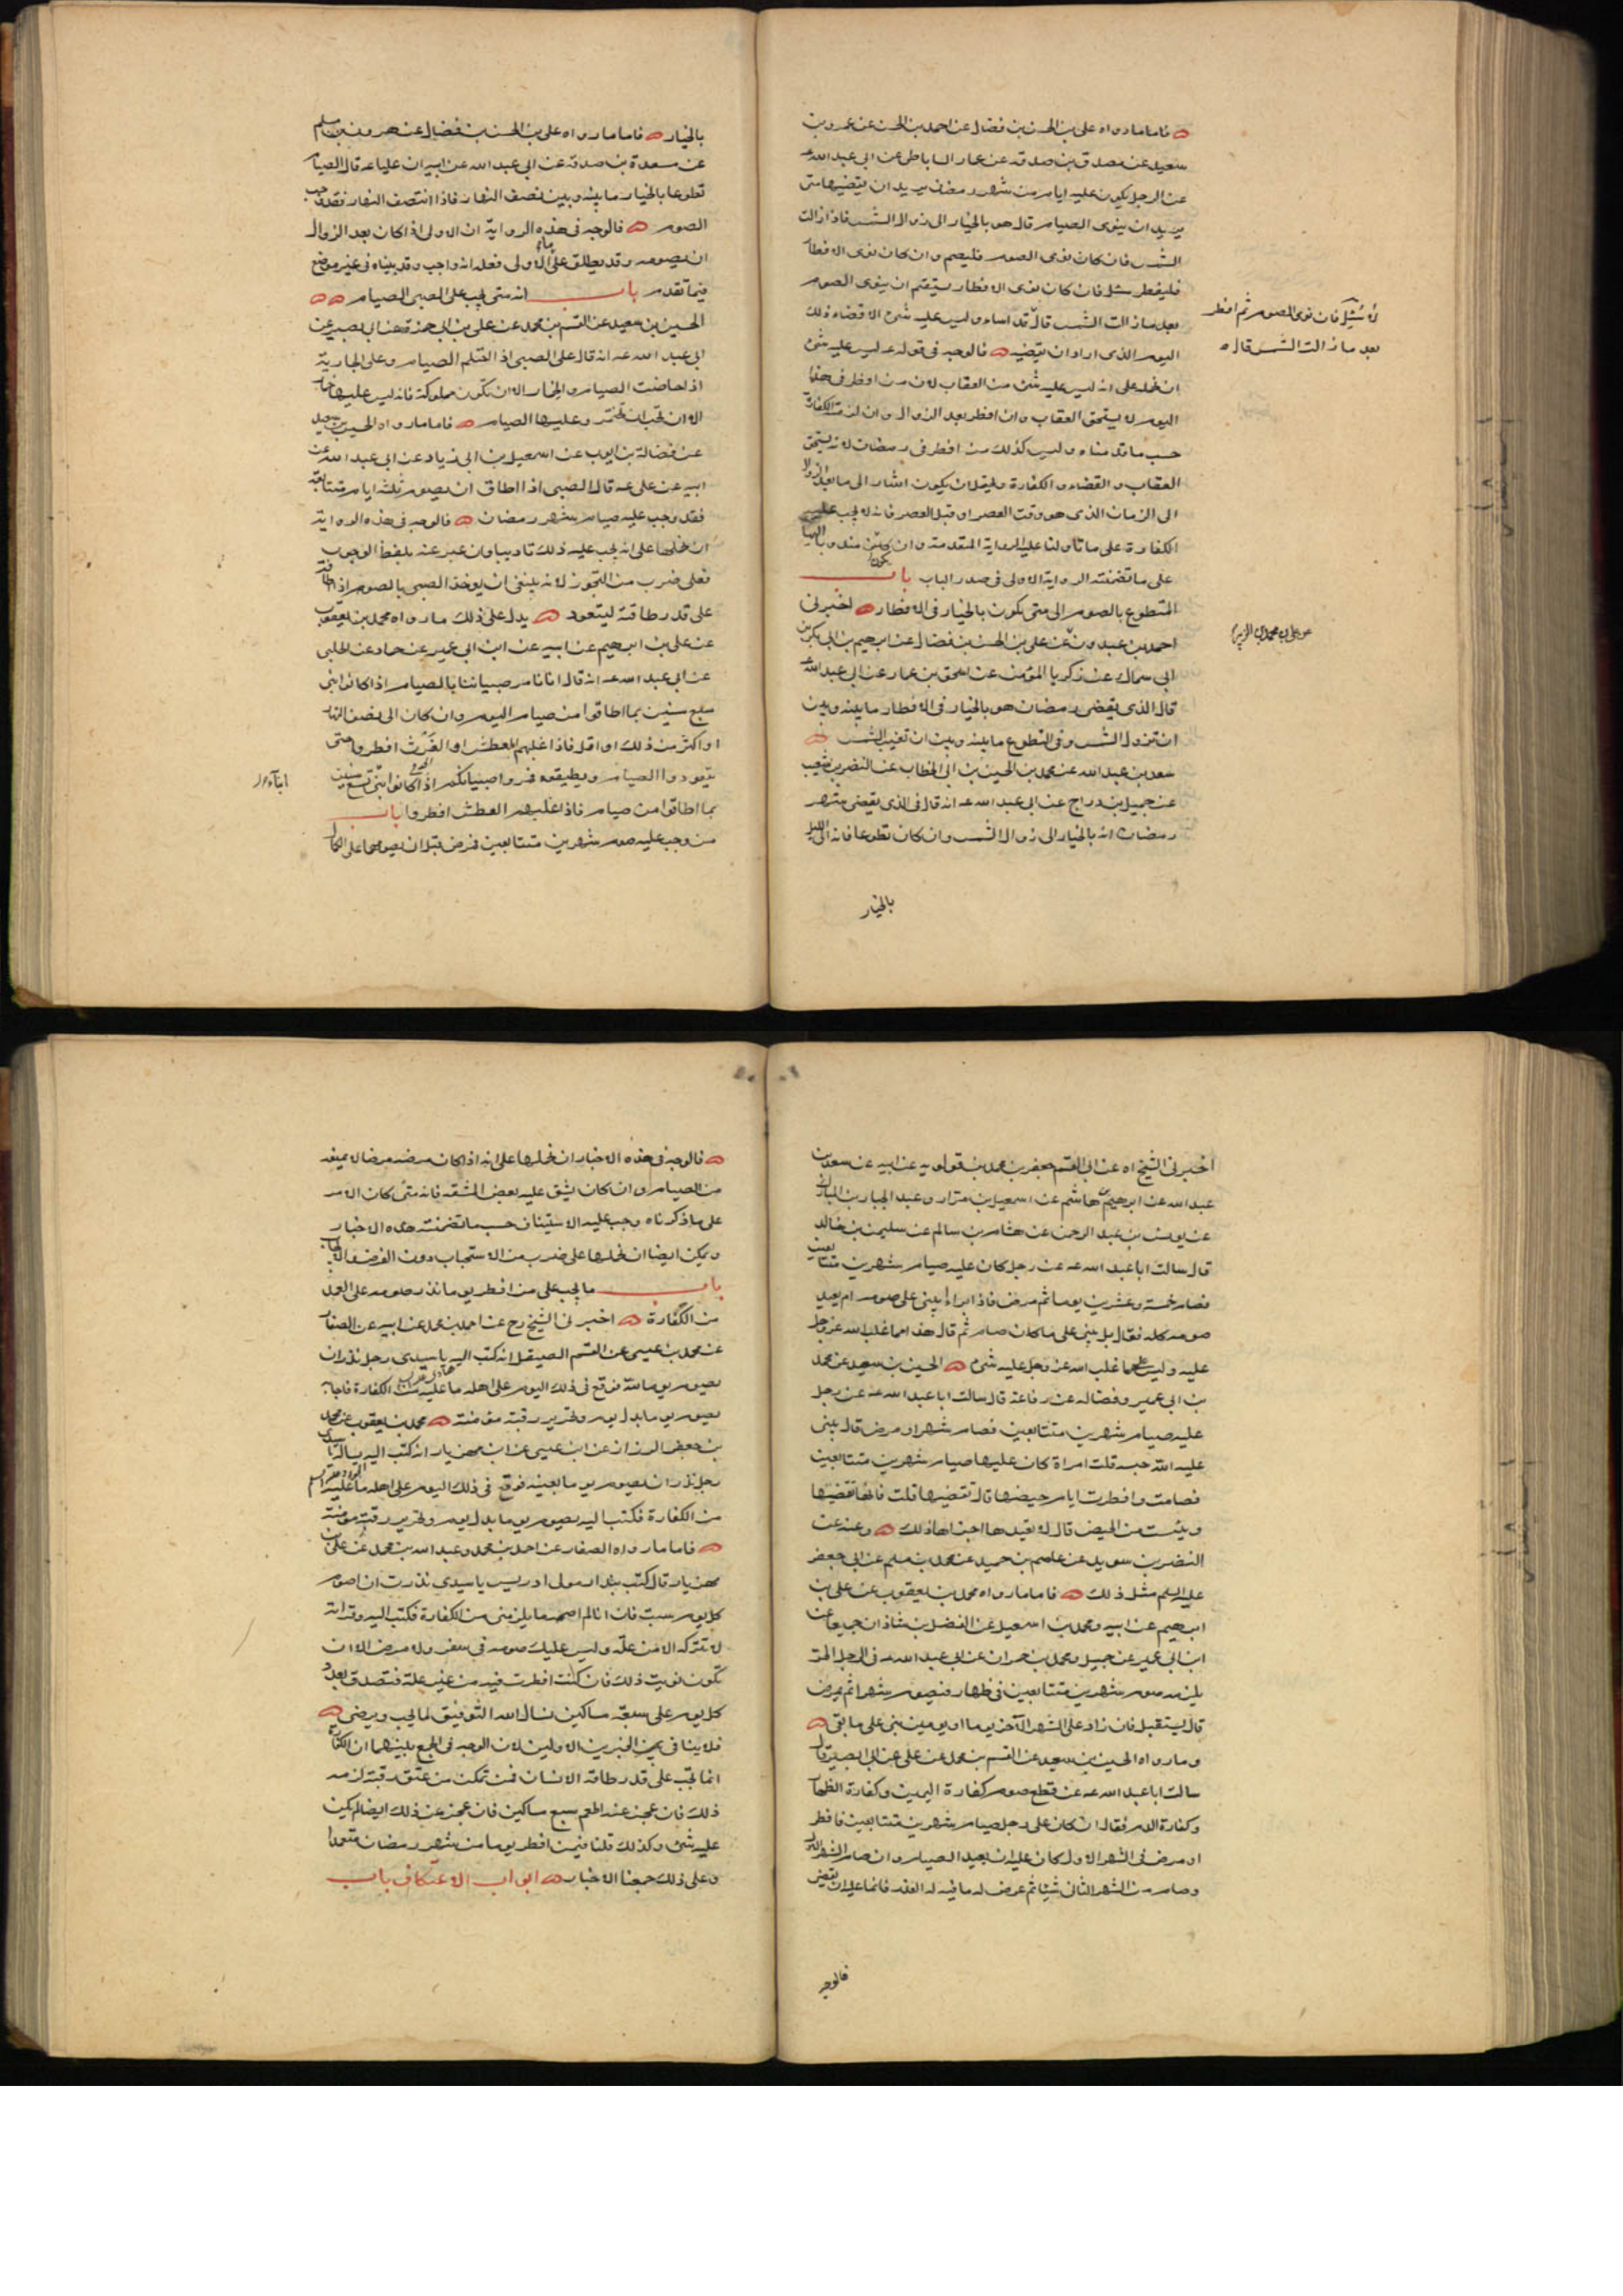 فاما ما رواه على بن الحسن بن فضال عن احمد بن الحسن عن عمرو بن
سعيد عن مصدق بن صدقه عن عمار الساباطى عن ابى عبد الله عـ
عن الرجل يكون عليه ايام من شهر رمضان يريد ان يقضيها متى
يريد ان ينوى الصيام قال هو بالخيار الى زوال الشمس فاذا زالت
الشمس فان كان نوى الصوم فليصم وان كان نوى الافطار
فليفطر سئل فان كان نوى الافطار يستقيم ان ينوى الصوم
بعد ما زالت الشمس قال
لا سُئِل فان نوى الصوم ثم افطر
بعد ما زالت الشمس قال
قد اساء وليس عليه شئ الا قضاء ذلك
اليوم الذى اراد ان يقضيه فالوجه فى قوله عـ ليس عليه شئ
ان نحمله على انه ليس عليه شئ من العقاب لان من افطر فى هذا
اليوم لا يستحق العقاب وان افطر بعد الزوال وان لزمته الكفارة
حسب ما قدمناه وليس كذلك من افطر فى رمضان لانه يستحق
العقاب والقضاء والكفارة ويحتمل ان يكون اشار الى ما بعد الزوال
الى الزمان الذى هو وقت العصر او قبل العصر فانه لا يجب عليه
الكفارة على ما تاولنا عليه الرواية المتقدمة وان يكون مندوبا اليها
على ما تضمنته الرواية الاولى فى صدر الباب باب
المتطوع بالصوم الى متى يكون بالخيار فى الافطار اخبرنى
احمد بن عبدون عن على بن محمد بن الزبير عن على بن الحسن بن فضال عن ابرهيم بن ابى بكر بن
ابى سمال عن زكريا المؤمن عن اسحق بن عمار عن ابى عبد الله عـ
قال الذى يقضى رمضان هو بالخيار فى الافطار ما بينه وبين
ان تزول الشمس وفى التطوع ما بينه وبين ان تغيب الشمس
سعد بن عبد الله عن محمد بن الحسين بن ابى الخطاب عن النضر بن شعيب
عن جميل بن دراج عن ابى عبد الله عـ انه قال فى الذى يقضى شهر
رمضان انه بالخيار الى زوال الشمس وان كان تطوعا فانه الى الليل
بالخيار
بالخيار فاما ما رواه على بن الحسن بن فضال عن هرون بن مسلم
عن مسعدة بن صدقه عن ابى عبد الله عن ابيه ان عليا عـ قال الصيام
تطوعا بالخيار ما بينه وبين نصف النهار فاذا انتصف النهار فقد وجب
الصوم فالوجه فى هذه الرواية ان الاولى اذا كان بعد الزوال
ان يصومه وقد يطلق على ما الاولى فعله انه واجب وقد بيناه فى غير موضع
فيما تقدم باب انه متى يجب على الصبى الصيام
الحسين بن سعيد عن القسم بن محمد عن على بن ابى حمزة عن ابى بصير عن
ابى عبد الله عـ انه قال على الصبى اذا احتلم الصيام وعلى الجارية
اذا حاضت الصيام والخمار الا ان تكون مملوكة فانه ليس عليها خمار
الا ان تحب ان تختمر وعليها الصيام فاما ما رواه الحسين بن سعيد
عن فضالة بن ايوب عن اسمعيل بن ابى زياد عن ابى عبد الله عن
ابيه عن على عـ قال الصبى اذا اطاق ان يصوم ثلثه ايام متتابعة
فقد وجب عليه صيام شهر رمضان فالوجه فى هذه الرواية
ان نحملها على انه يجب عليه ذلك تاديبا وان عبر عنه بلفظ الوجوب
فعلى ضرب من التجوز لانه ينبغى ان يوخذ الصبى بالصوم اذا اطاقه
على قدر طاقته ليتعود يدل على ذلك ما رواه محمد بن يعقوب
عن على بن ابرهيم عن ابيه عن ابن ابى عمير عن حماد عن الحلبى
عن ابى عبد الله عـ انه قال انا نامر صبياننا بالصيام اذا كانوا بنى
سبع سنين بما اطاقوا من صيام اليوم وان كان الى نصف النهار
او اكثر من ذلك او اقل فاذا غلبهم العطش او الغَرَث افطروا حتى
يتعودوا الصيام ويطيقوه فمروا صبيانكم اذا كانوا بنى تسع سنين
ابناء
بما اطاقوا من صيام فاذا غلبهم العطش افطروا باب
من وجب عليه صوم شهرين متتابعين فمرض قبل ان يصومهما على الكمال
اخبرنى الشيخ ره عن ابى القسم جعفر بن محمد بن قولويه عن ابيه عن سعد بن
عبد الله عن ابرهيم بن هاشم عن اسمعيل بن مرار وعبد الجبار بن المبارك
عن يونس بن عبد الرحمن عن هشام بن سالم عن سليمن بن خالد
قال سالت ابا عبد الله عـ عن رجل كان عليه صيام شهرين متتابعين
فصام خمسة وعشرين يوما ثم مرض فاذا برأ يبنى على صومه ام يعيد
صومه كله فقال بل يبنى على ما كان صام ثم قال هذا مما غلب الله عز وجل
عليه وليس على ما غلب الله عز وجل عليه شئ الحسين بن سعيد عن محمد
بن ابى عمير وفضاله عن رفاعة قال سالت ابا عبد الله عـ عن رجل
عليه صيام شهرين متتابعين فصام شهرا ومرض قال يبنى
عليه الله حبسه قلت امراة كان عليها صيام شهرين متتابعين
فصامت وافطرت ايام حيضها قال تقضيها قلت فانها قضيتها
ويئست من الحيض قال لا تعيدها اجزاها ذلك وعنه عن
النضر بن سويد عن عاصم بن حميد عن محمد بن مسلم عن ابى جعفر
عليه السلم مثل ذلك فاما ما رواه محمد بن يعقوب عن على بن
ابرهيم عن ابيه ومحمد بن اسمعيل عن الفضل بن شاذان جميعا عن
ابن ابى عمير عن جميل ومحمد بن حمران عن ابى عبد الله عـ فى الرجل الحر
يلزمه صوم شهرين متتابعين فى ظهار فيصوم شهرا ثم يمرض
قال يستقبل فان زاد على الشهر الاخر يوما او يومين بنى على ما بقى
وما رواه الحسين بن سعيد عن القسم بن محمد عن على عن ابى بصير قال
سالت ابا عبد الله عـ عن قطع صوم كفارة اليمين وكفارة الظهار
وكفارة الدم فقال ان كان على رجل صيام شهرين متتابعين فافطر
او مرض فى الشهر الاول كان عليه ان يعيد الصيام وان صام الشهر الاول
وصام من الشهر الثانى شيئا ثم عرض له ما فيه له العذر فانما عليه ان يقضى
فالوجه
فالوجه فى هذه الاخبار ان نحملها على انه اذا كان مرضه مرضا لا يمنعه
من الصيام وان كان يشق عليه بعض المشقه فانه متى كان الامر
على ما ذكرناه وجب عليه الاستيناف حسب ما تضمنته هذه الاخبار
ويمكن ايضا ان نحملها على ضرب من الاستحباب دون الفرض والايجاب
باب ما يجب على من افطر يوما نذر صومه على العمد
من الكفارة اخبرنى الشيخ رح عن احمد بن محمد عن ابيه عن الصفار
عن محمد بن عيسى عن القسم الصيقل انه كتب اليه يا سيدى رجل نذر ان
يصوم يوما لله فوقع فى ذلك اليوم على اهله ما عليه من الكفارة فاجابه
يصوم يوما بدل يوم وتحرير رقبة مؤمنة محمد بن يعقوب عن محمد
بن جعفر الرزاز عن ابن عيسى عن ابن مهزيار انه كتب اليه يساله يا سيدى
رجل نذر ان يصوم يوما بعينه فوقع فى ذلك اليوم على اهله ما عليه
من الكفارة فكتب اليه يصوم يوما بدل يوم وتحرير رقبة مؤمنة
فاما ما رواه الصفار عن احمد بن محمد وعبد الله بن محمد عن على بن
مهزيار قال كتب بندار مولى ادريس يا سيدى نذرت ان اصوم
كل يوم سبت فان انا لم اصمه ما يلزمنى من الكفارة فكتب اليه وقراته
لا تتركه الا من علّة وليس عليك صومه فى سفر ولا مرض الا ان
تكون نويت ذلك فان كنت افطرت فيه من غير علة فتصدق بعدد
كل يوم على سبعة مساكين نسال الله التوفيق لما يحب ويرضى
فلا ينافى الخبرين الاولين لان الوجه فى الجمع بينهما ان الكفارة
انما تجب على قدر طاقة الانسان فمن تمكن من عتق رقبة لزمه
ذلك فان عجز عنه اطعم سبع مساكين فان عجز عن ذلك ايضا لم يكن
عليه شئ وكذلك قلنا فيمن افطر يوما من شهر رمضان متعمدا
وعلى ذلك جمعنا الاخبار ابواب الاعتكاف باب